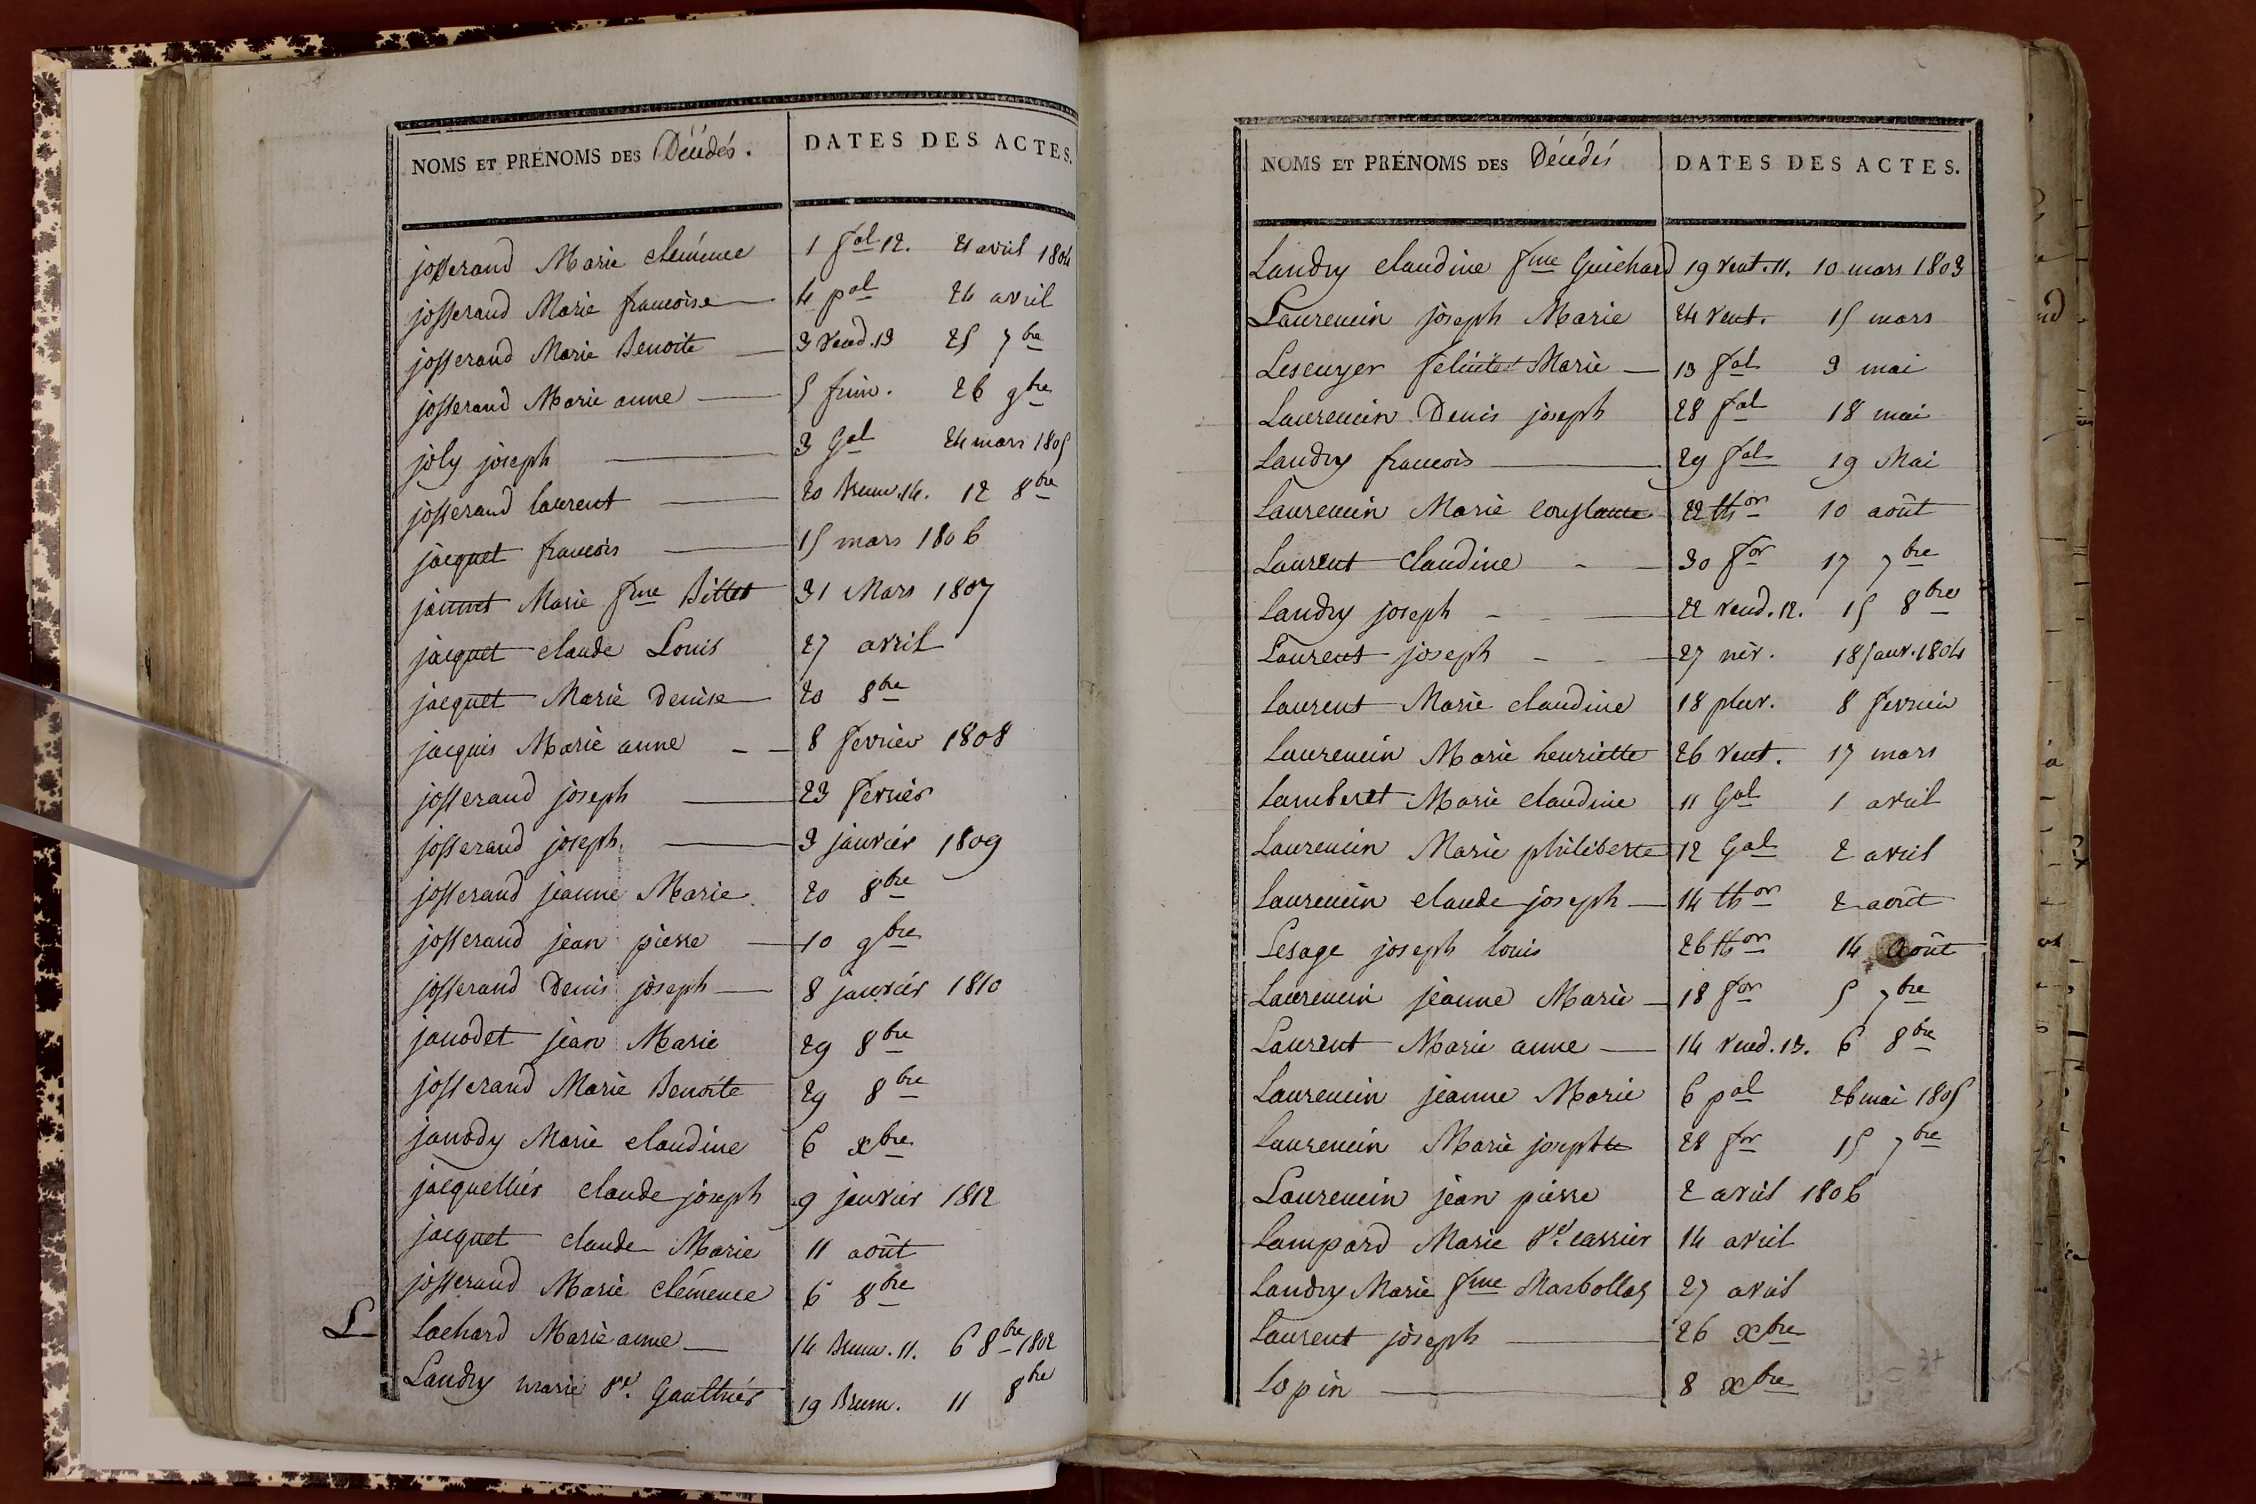 NOMS ET PRÉNOMS DES Décédés. DATES DES ACTES.
josserand Marie clémence 1 fal 12. 21 avril 1804
josserand Marie francoise 4 pal 24 avril
josserand Marie Benoite 3 vend. 13 25 7bre
josserand Marie anne 5 frim. 26 9bre
joly joseph 3 Gal 24 mars 1805
josserand laurent 20 Brum. 14. 12 8bre
jacquet francois 15 mars 1806
Marie fme Billet 31 Mars 1807
jacquet claude Louis 27 avril
jacquet Marie Denise 20 8bre
jacquis Marie anne 8 fevrier 1808
josserand joseph 23 février
josserand joseph. 3 janvier 1809
josserand jeanne Marie. 20 8bre
josserand jean pierre 10 9bre
josserand Denis joseph 8 janvier 1810
janodet jean Marie 29 8bre
josserand Marie Benoite 29 8bre
janody Marie claudine 6 xbre
jacquellier claude joseph 9 janvier 1812
jacquet claude Marie 11 août
josserand Marie clémence 6 8bre
L Lachard Marie anne 14 Brum. 11. 6 8bre 1802
Landry marie ve. Gauthier 19 Brum. 11 8bre
NOMS ET PRÉNOMS DES Décédés DATES DES ACTES.
Landry claudine fme Guichard 19 vent. 11. 10 mars 1803
Laurencin joseph Marie 24 vent. 15 mars
Lescuyer felicité Marie 13 fal 3 mai
Laurencin Denis joseph 28 fal 18 mai
Landry francois 29 fal 19 Mai
Laurencin Marie constance 22 thor 10 août
Laurent claudine 30 for 17 7bre
Landry joseph 22 vend. 12. 15 8bre
Laurent joseph 27 niv. 18 janv. 1804
Laurent Marie claudine 18 pluv. 8 fevrier
Laurencin Marie henriette 26 vent. 17 mars
Lamberet Marie claudine 11 Gal 1 avril
Laurencin Marie philiberte 12 Gal 2 avril
Laurencin claude joseph 14 thor 2 août
Lesage joseph louis 26 thor 14 août
Laurencin jeanne Marie 18 for 5 7bre
Laurent Marie anne 14 vend. 13. 6 8bre
Laurencin jeanne Marie 6 pal 26 mai 1805
Laurencin Marie josephte 28 for 15 7bre
Laurencin jean pierre 2 avril 1806
Lampard Marie ve. cassier 14 avril
Landry Marie fme Marbollas 27 avril
Laurent joseph 26 xbre
Lopin 8 xbre